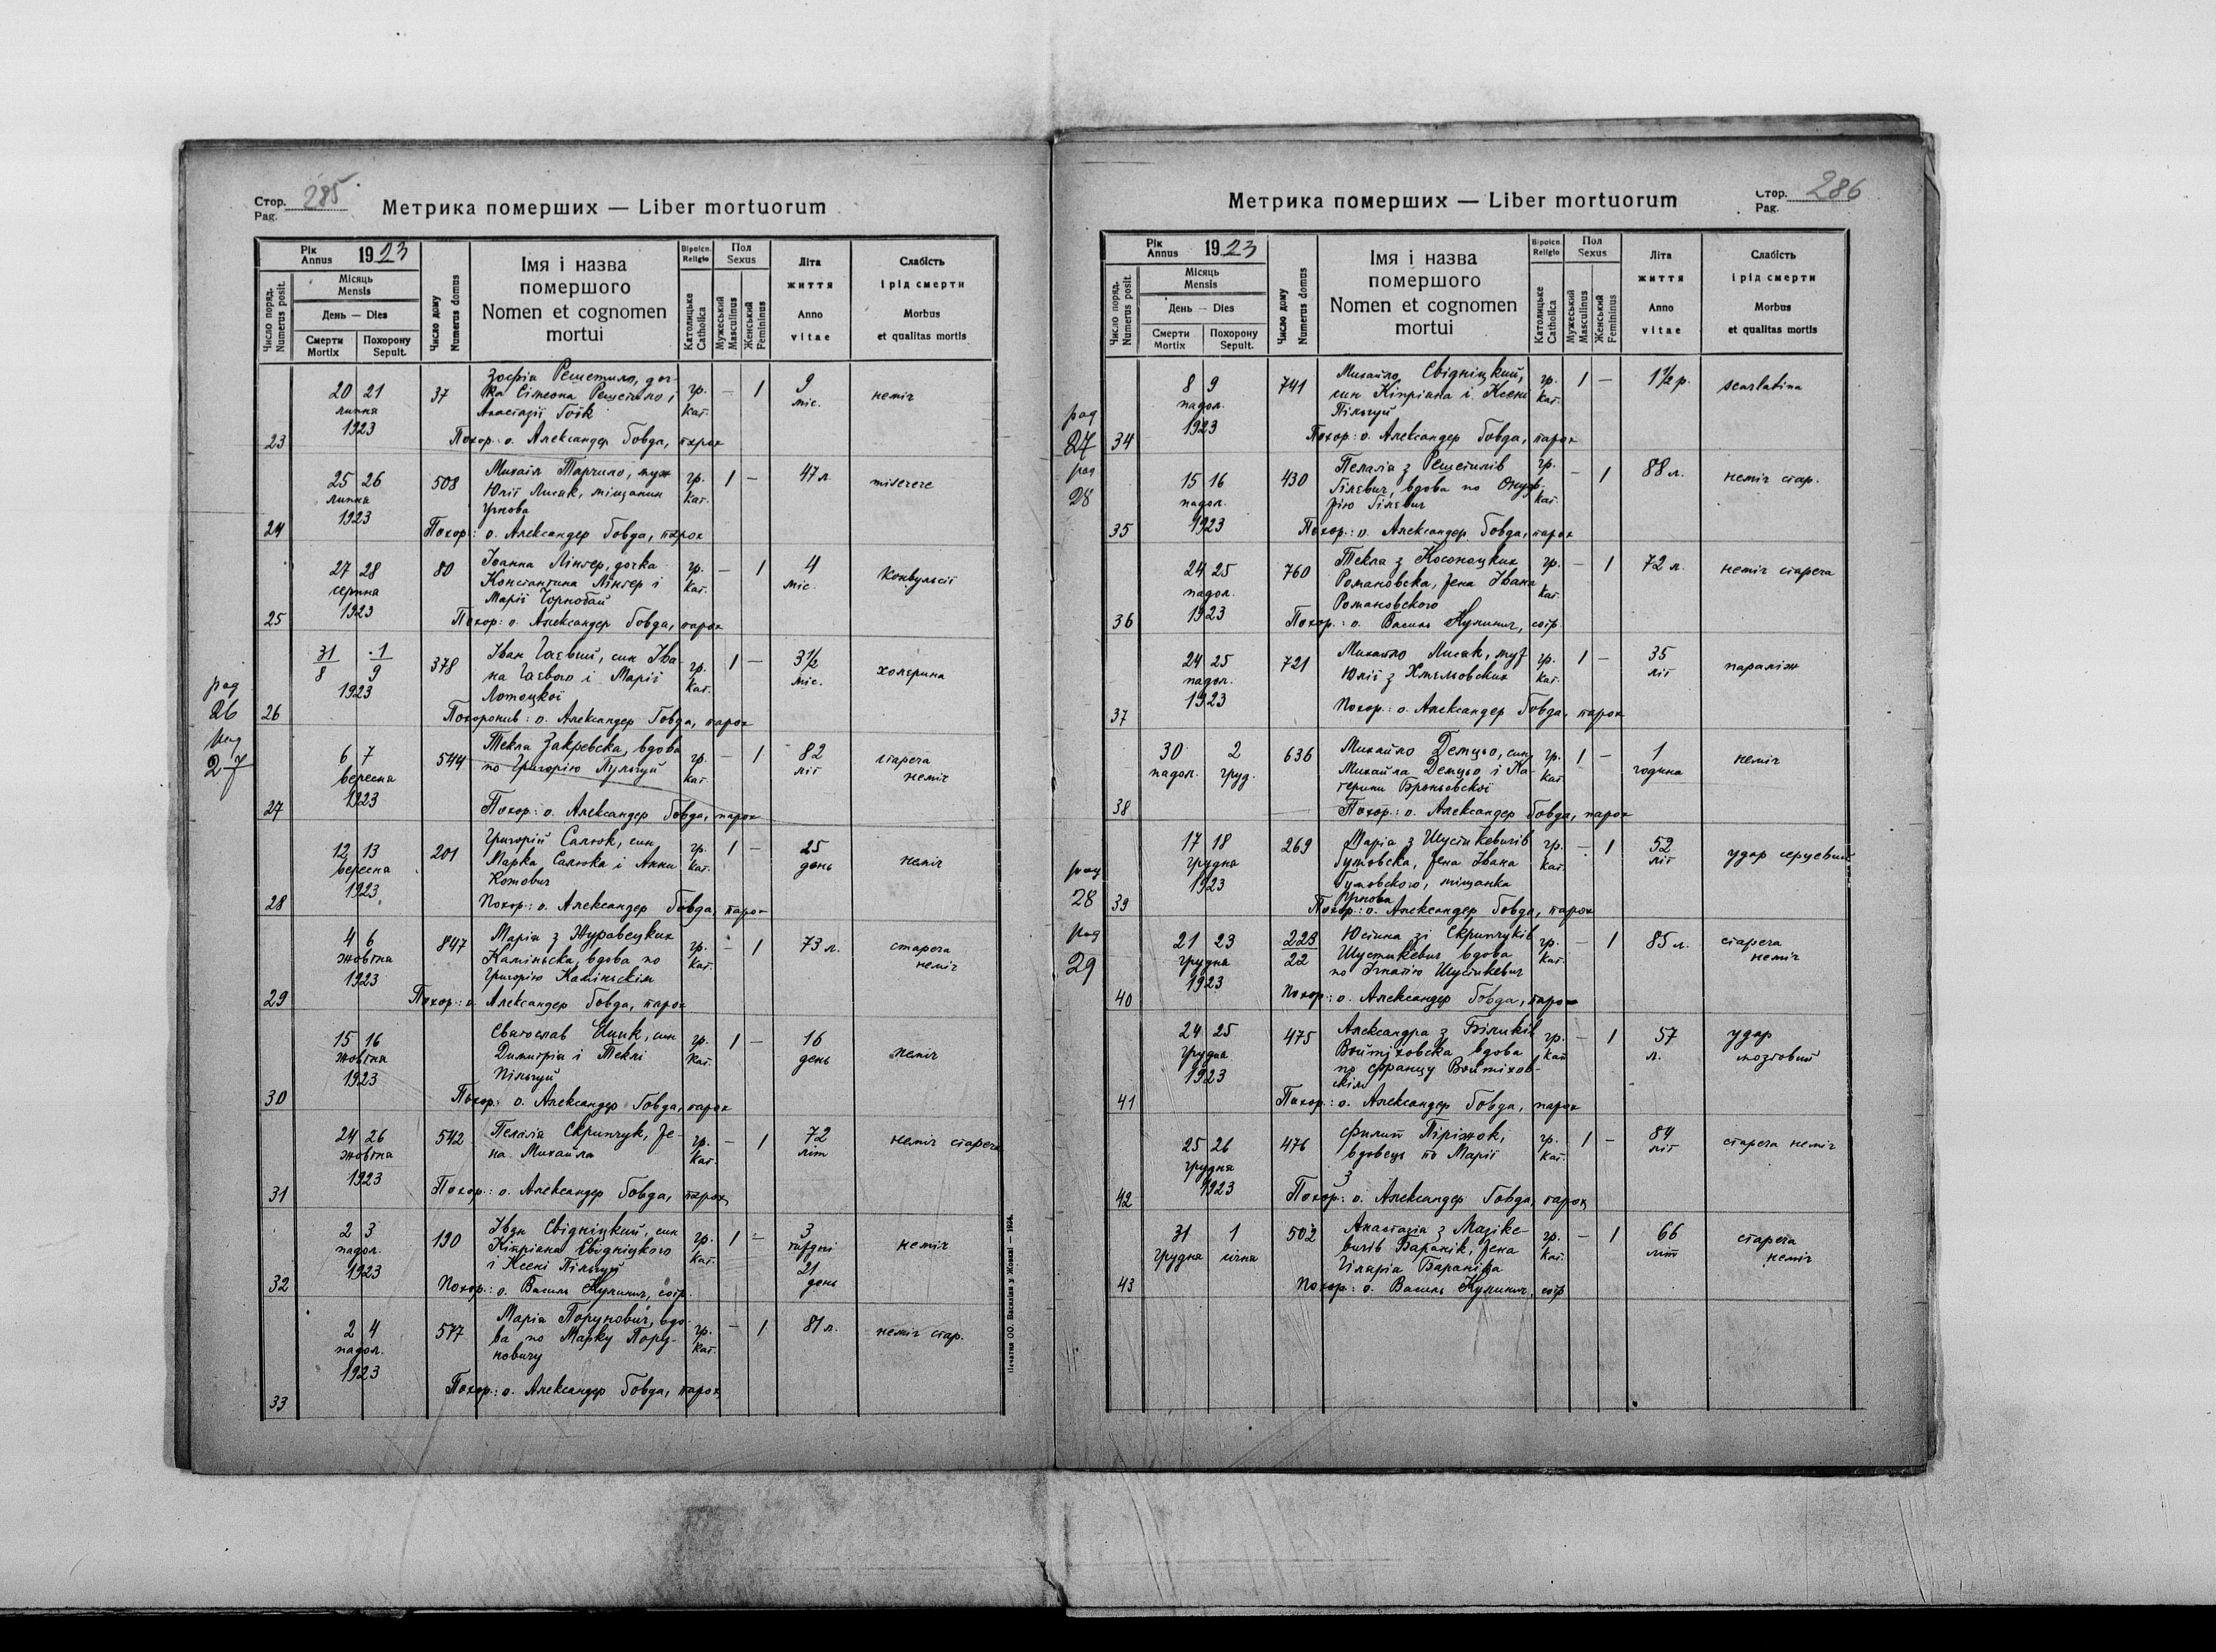 Стор. 285
Pag.
Метрика померших — Liber mortuorum
Рік 1923
Annus
Місяць
Mensis
День — Dies
Число поряд.
Numerus posit.
Смерти
Mortix
Похорону
Sepult.
Число дому
Numerus domus
Імя і назва
помершого
Nomen et cognomen
mortui
Віроісп.
Religio
Католицьке
Catholica
Пол
Sexus
Мужеський
Masculinus
Женський
Femininus
Літа
життя
Anno
vitae
Слабість
і рід смерти
Morbus
et qualitas mortis
20 21 37 Зофія Решетило, доч- гр. — 1 9 неміч
липня ка Сімеона Решетило і кат. міс.
1923 Анастазії Гоїк
23 Похор: о. Александер Говда, парох
25 26 508 Михаіл Тарчило, муж гр. 1 — 47 л. miserere
липня Юлії Лисак, міщанин кат.
1923 Угнова
24 Похор: о. Александер Говда, парох
27 28 80 Іоанна Лінтер, дочка гр. — 1 4 конвульсії
серпня Константина Лінтер і кат. міс.
1923 Марії Чорнобай
25 Похор: о. Александер Говда, парох
31/8 1/9 378 Іван Гаєвий, син Іва- гр. 1 — 3½ холєрина
1923 на Гаєвого і Марії кат. міс.
Лотоцкої
рад 26
26 Похоронив: о. Александер Говда, парох
рад 27
6 7 544 Текля Закревска, вдова гр. — 1 82 стареча
вересня по Григорію Пульгуй кат. літ неміч
1923
27 Похор: о. Александер Говда, парох
12 13 201 Григорій Салюк, син гр. 1 — 25 неміч
вересня Марка Салюка і Анни кат. день
1923 Котович
28 Похор.: о. Александер Говда, парох
4 6 847 Марія з Журавецких гр. — 1 73 л. стареча
жовтня Каміньска, вдова по кат. неміч
1923 Григорію Каміньскім
29 Похор.: о. Александер Говда, парох
15 16 Святослав син гр. 1 — 16 неміч
жовтня Димитрія і Теклі кат. день
1923 Пільгуй
30 Похор: о. Александер Говда, парох
24 26 542 Пелагія Скрипчук, же- гр. — 1 72 неміч стареча
жовтня на Михайла кат. літ
1923
31 Похор.: о. Александер Говда, парох
2 3 190 Іван Свідніцкий, син гр. 1 — 3
падол. Кіпріяна Свідніцкого кат. тиждні неміч
1923 і Ксені Пільгуй 21
день
32 Похор.: о. Василь Кулинич, сотр.
2 4 577 Марія Порунович, вдо- гр. — 1 81 л. неміч стар.
падол. ва по Марку Пору- кат.
1923 новичу
33 Похор.: о. Александер Говда, парох
Печатня ОО. Василіян у Жовкві — 1924.
Стор. 286
Pag.
Метрика померших — Liber mortuorum
Рік 1923
Annus
Місяць
Mensis
День — Dies
Число поряд.
Numerus posit.
Смерти
Mortix
Похорону
Sepult.
Число дому
Numerus domus
Імя і назва
помершого
Nomen et cognomen
mortui
Віроісп.
Religio
Католицьке
Catholica
Пол
Sexus
Мужеський
Masculinus
Женський
Femininus
Літа
життя
Anno
vitae
Слабість
і рід смерти
Morbus
et qualitas mortis
8 9 741 Михайло Свідніцкий, гр. 1 — 1½ р. scarlatina
падол. син Кіпріяна і Ксені кат.
1923 Пільгуй
рад 27
34 Похор: о. Александер Говда, парох
рад 28
15 16 430 Пелагія з Решетилів гр. — 1 88 л. неміч стар.
падол. Гілевич, вдова по Онуф- кат.
1923 рію Гілевич
35 Похор: о. Александер Говда, парох
24 25 760 Текля з Косоноцких гр. — 1 72 л. неміч стареча
падол. Романовска, жена Івана кат.
1923 Романовского
36 Похор.: о. Василь Кулинич, сотр.
24 25 721 Михайло Лисак, муж гр. 1 — 35 параліж
падол. Юлії з Хмельовских кат. літ
1923
37 Похор: о. Александер Говда, парох
30 2 636 Михайло Демцьо, син гр. 1 — 1 неміч
падол. груд. Михайла Демцьо і Ка- кат. година
терини Броньовскої
38 Похор: о. Александер Говда, парох
17 18 269 Марія з Шустикевичів гр. — 1 52 удар серцевий
грудня Гутовска, жена Івана кат. літ
1923 Гутовского, міщанка
Угнова
рад 28
39 Похор.: о. Александер Говда, парох
рад 29
21 23 223/22 Юстина зі Скрипчуків гр. — 1 85 л. стареча
грудня Шустикевич вдова кат. неміч
1923 по Ігнатію Шустикевич
40 Похор: о. Александер Говда, парох
24 25 475 Александра з Біликів гр. — 1 57 удар
грудня Войтіховска вдова кат. л. мозговий
1923 по Францу Войтіхов-
скім
41 Похор: о. Александер Говда, парох
25 26 476 Филип Піріжок, гр. 1 — 84 стареча неміч
грудня вдовець по Марії кат. літ
1923 з
42 Похор: о. Александер Говда, парох
31 1 502 Анастазія з Мазіке- гр. — 1 66 стареча
грудня січня вичів Бараник, жена кат. літ неміч
Гіларія Бараніка
43 Похор: о. Василь Кулинич, сотр